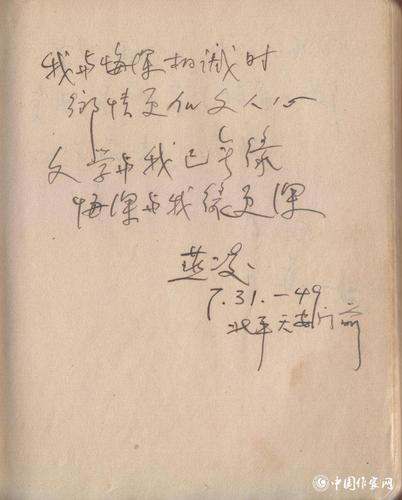 我与悔深相识时
乡情更似文人心
文学与我已无缘
悔深与我缘更深
燕凌
7.31.—49
北平天安门前
中国作家网